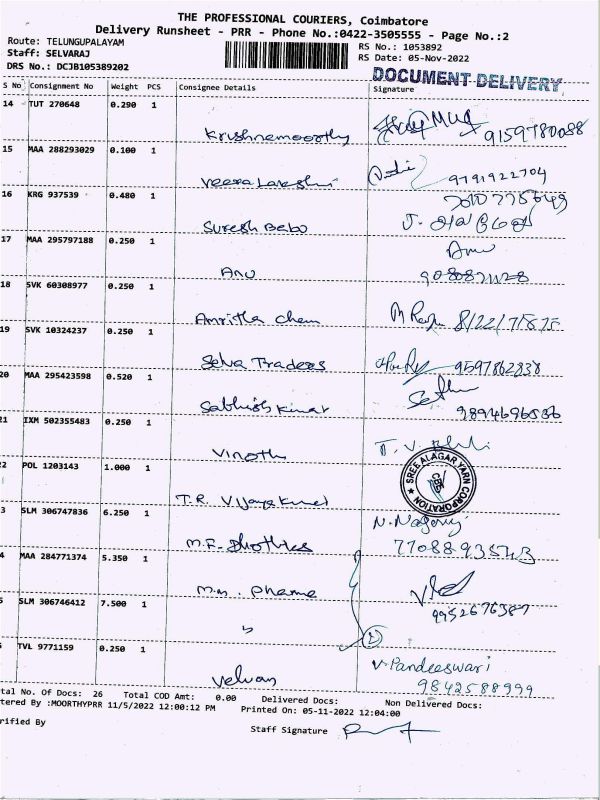 THE PROFESSIONAL COURIERS, Coimbatore
Delivery Runsheet - PRR - Phone No.:0422-3505555 - Page No.:2
Route: TELUNGUPALAYAM
Staff: SELVARAJ
DRS No.: DCJB105389202
RS No.: 1053892
RS Date: 05-Nov-2022
DOCUMENT DELIVERY
S No Consignment No Weight PCS Consignee Details Signature
14 TUT 270648 0.290 1
Krishnamoorthy 9159780088
15 MAA 288293029 0.100 1
Veera Lakshmi 9791922704
16 KRG 937539 0.480 1
Suresh Babo
17 MAA 295797188 0.250 1
Anu
Anu
18 SVK 60308977 0.250 1
Amritha Chem
19 SVK 10324237 0.250 1
Selva Traders 9597862838
20 MAA 295423598 0.520 1
Sabhish Kumar 9894696586
21 IXM 502355483 0.250 1
Vinoth
22 POL 1203143 1.000 1
SREE ALAGAR YARN CORPORATION
CBE
T.R. Vijayakumar
3 SLM 306747836 6.250 1
M.F. Dhothies
4 MAA 284771374 5.350 1
M.M. Pharma 9952676387
5 SLM 306746412 7.500 1
TVL 9771159 0.250 1
V. Pandeeswari
Velvan 9842588999
tal No. Of Docs: 26 Total COD Amt: 0.00 Delivered Docs: Non Delivered Docs:
tered By :MOORTHYPRR 11/5/2022 12:00:12 PM Printed On: 05-11-2022 12:04:00
rified By
Staff Signature